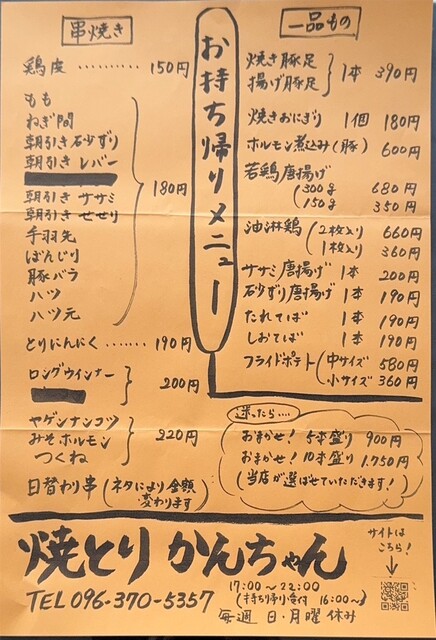 お持ち帰りメニュー
串焼き
鶏皮 ………… 150円
もも
ねぎ間
朝引き砂ずり
朝引きレバー
朝引きササミ
朝引きせせり
手羽先
ぼんじり
豚バラ
ハツ
ハツ元
180円
とりにんにく ……… 190円
ロングウインナー
200円
ヤゲンナンコツ
みそホルモン
つくね
220円
日替わり串 (ネタにより金額
変わります)
一品もの
焼き豚足
揚げ豚足
1本 390円
焼きおにぎり 1個 180円
ホルモン煮込み(豚) 600円
若鶏唐揚げ
300g 680円
150g 350円
油淋鶏 (2枚入り 660円
1枚入り 360円
ササミ唐揚げ 1本 200円
砂ずり唐揚げ 1本 190円
たれてば 1本 190円
しおてば 1本 190円
フライドポテト (中サイズ 580円
小サイズ 360円
迷ったら....
おまかせ! 5本盛り 900円
おまかせ! 10本盛り 1.750円
(当店が選ばせていただきます!)
焼とり かんちゃん
TEL 096-370-5357
17:00〜22:00
(持ち帰り受付 16:00〜)
毎週 日・月曜 休み
サイトは
こちら!